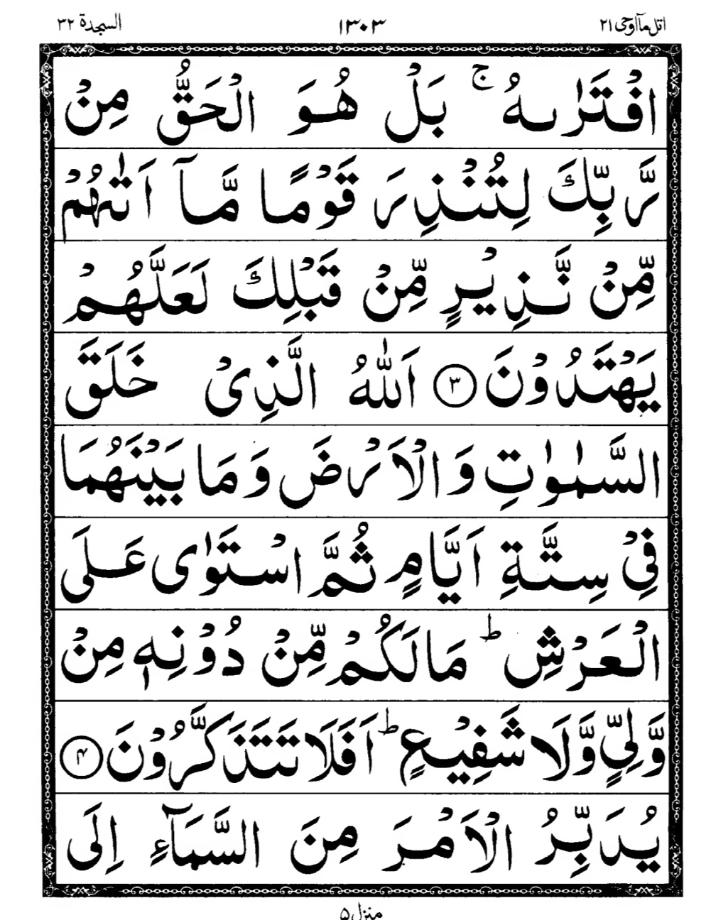 اتل مآ اوحی ۲۱ ۱۳۰۳ السجدة ۳۲
افْتَرٰىهُ ۚ بَلْ هُوَ الْحَقُّ مِنْ
رَّبِّكَ لِتُنْذِرَ قَوْمًا مَّاۤ اَتٰىهُمْ
مِّنْ نَّذِیْرٍ مِّنْ قَبْلِكَ لَعَلَّهُمْ
یَهْتَدُوْنَ ۳ اَللّٰهُ الَّذِیْ خَلَقَ
السَّمٰوٰتِ وَ الْاَرْضَ وَ مَا بَیْنَهُمَا
فِیْ سِتَّةِ اَیَّامٍ ثُمَّ اسْتَوٰی عَلَی
الْعَرْشِ ؕ مَا لَكُمْ مِّنْ دُوْنِهٖ مِنْ
وَّلِیٍّ وَّ لَا شَفِیْعٍ ؕ اَفَلَا تَتَذَكَّرُوْنَ ۴
یُدَبِّرُ الْاَمْرَ مِنَ السَّمَآءِ اِلَی
منزل ۵